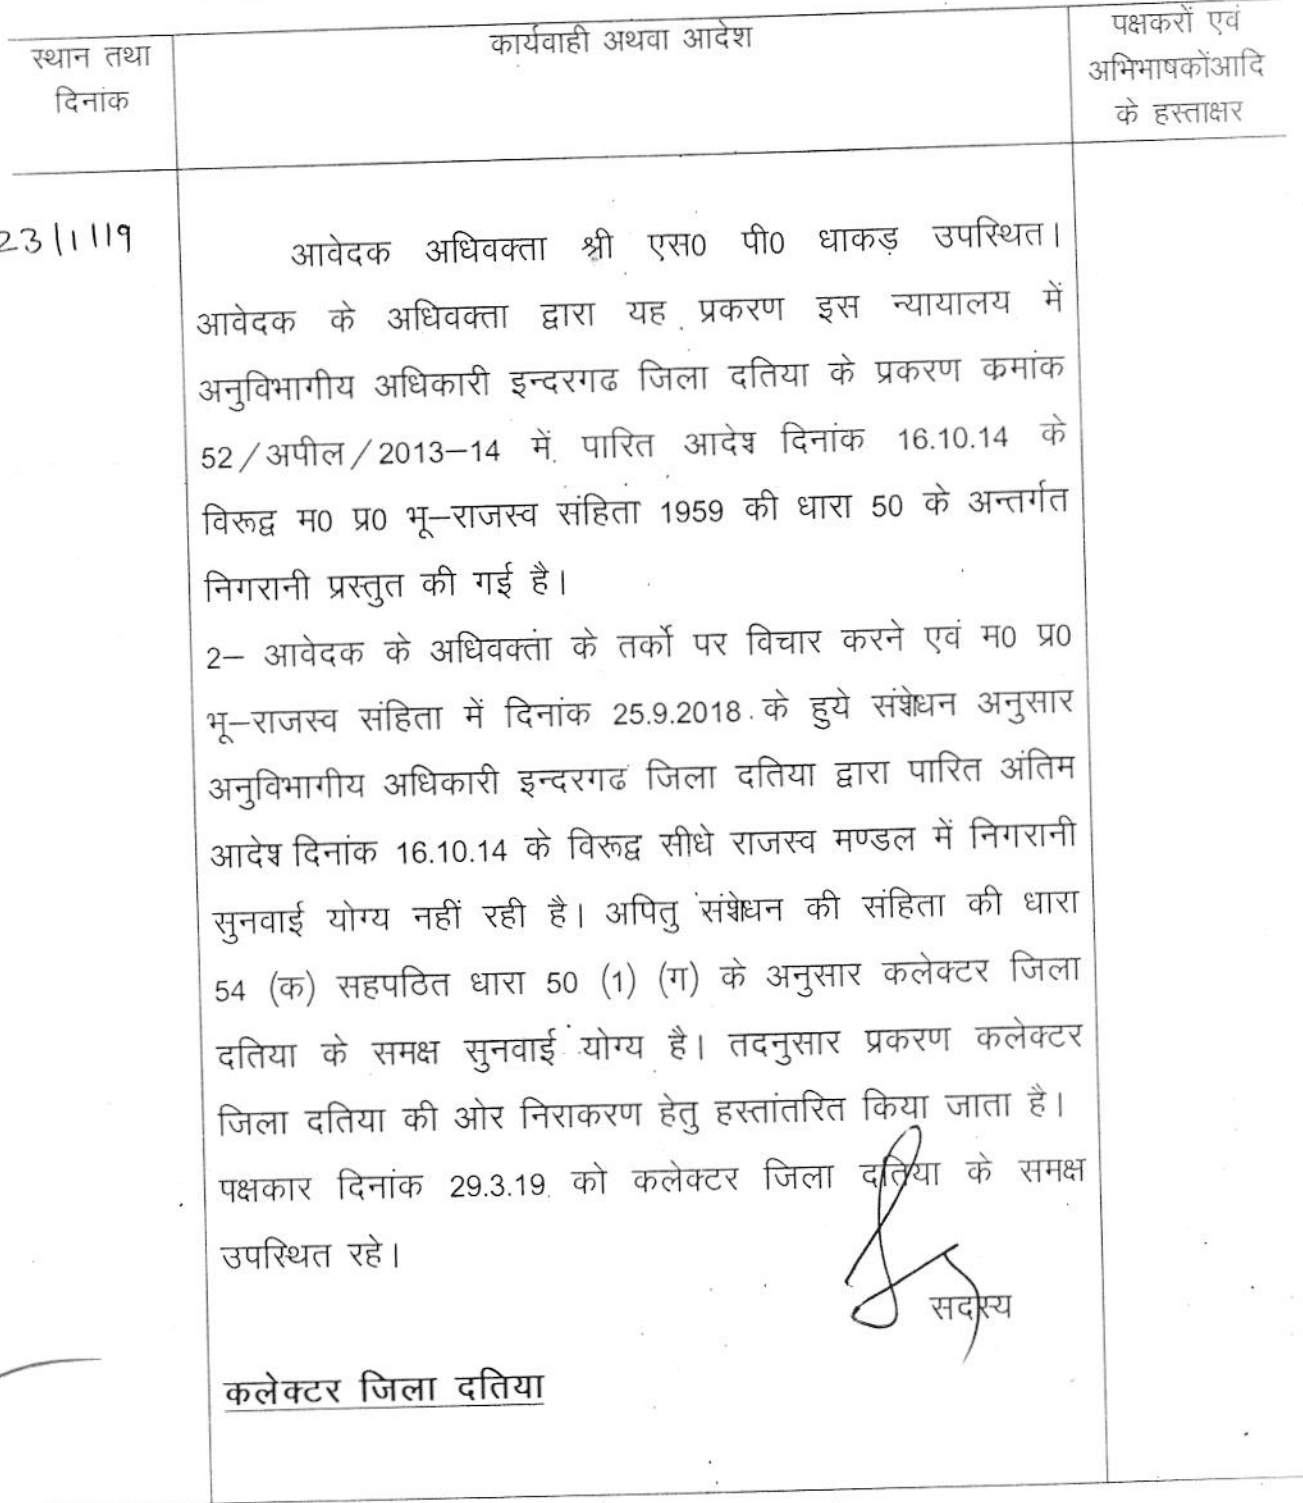 स्थान तथा
दिनांक
कार्यवाही अथवा आदेश
पक्षकारों एवं
अभिभाषकोंआदि
के हस्ताक्षर
23|1|19
आवेदक अधिवक्ता श्री एस0 पी0 धाकड़ उपस्थित।
आवेदक के अधिवक्ता द्वारा यह प्रकरण इस न्यायालय में
अनुविभागीय अधिकारी इन्दरगढ जिला दतिया के प्रकरण कमांक
52/अपील/2013–14 में पारित आदेश दिनांक 16.10.14 के
विरूद्व म0 प्र0 भू–राजस्व संहिता 1959 की धारा 50 के अन्तर्गत
निगरानी प्रस्तुत की गई है।
2– आवेदक के अधिवक्तां के तर्को पर विचार करने एवं म0 प्र0
भू–राजस्व संहिता में दिनांक 25.9.2018 के हुये संशेधन अनुसार
अनुविभागीय अधिकारी इन्दरगढ जिला दतिया द्वारा पारित अंतिम
आदेश दिनांक 16.10.14 के विरूद्व सीधे राजस्व मण्डल में निगरानी
सुनवाई योग्य नहीं रही है। अपितु संशेधन की संहिता की धारा
54 (क) सहपठित धारा 50 (1) (ग) के अनुसार कलेक्टर जिला
दतिया के समक्ष सुनवाई योग्य है। तदनुसार प्रकरण कलेक्टर
जिला दतिया की ओर निराकरण हेतु हस्तांतरित किया जाता है।
पक्षकार दिनांक 29.3.19 को कलेक्टर जिला दतिया के समक्ष
उपस्थित रहे।
सदस्य
कलेक्टर जिला दतिया